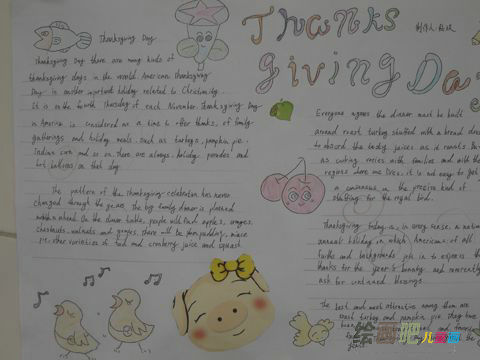 Thanksgiving Day
Thanks
Giving Da
Thanksgiving Day there are many kinds of
thanksgiving days in the world. American Thanksgiving
Day is another important holiday related to Christianity.
It is on the fourth Thursday of each November. thanksgiving Day
in America is considered as a time to offer thanks, of family
gatherings and holiday meals. such as turkeys, pumpkin pie.
Indian corn and so on. there are always holiday parades and
hot balloons on that day.
The pattern of the thanksgiving celebration has never
changed through the years. The big family dinner is planned
months ahead. On the dinner table, people will find apples, oranges,
chestnuts, walnuts and grapes. there will be plum pudding, mince
pie, other varieties of food and cranberry juice and squash.
Everyone agrees the dinner must be built
around roast turkey stuffed with a bread dres
to absorb the tasty juices as it roasts. Bu
as cooking varies with families and with the
regions where one lives, it is not easy to get
a consensus on the precise kind of
stuffing for the royal bird.
Thanksgiving today is, in every sense, a natio
annual holiday in which Americans of all
faiths and backgrounds join in to express th
thanks for the year's bounty and reverently
ask for continued blessings.
The best and most attractive among them are
roast turkey and pumpkin pie. they have
been
绘画吧 儿童画